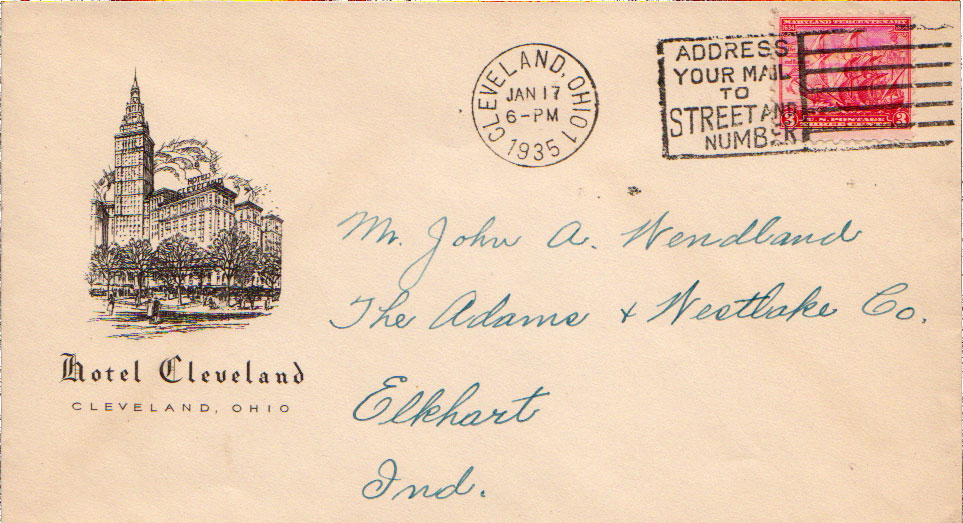 MARYLAND TERCENTENARY
ADDRESS
YOUR MAIL
TO
STREET AND
NUMBER
3 U.S. POSTAGE 3
CLEVELAND, OHIO 1
JAN 17
6-PM
1935
HOTEL
CLEVELAND
Mr. John A. Wendland
The Adams & Westlake Co.
Elkhart
Ind.
Hotel Cleveland
CLEVELAND, OHIO